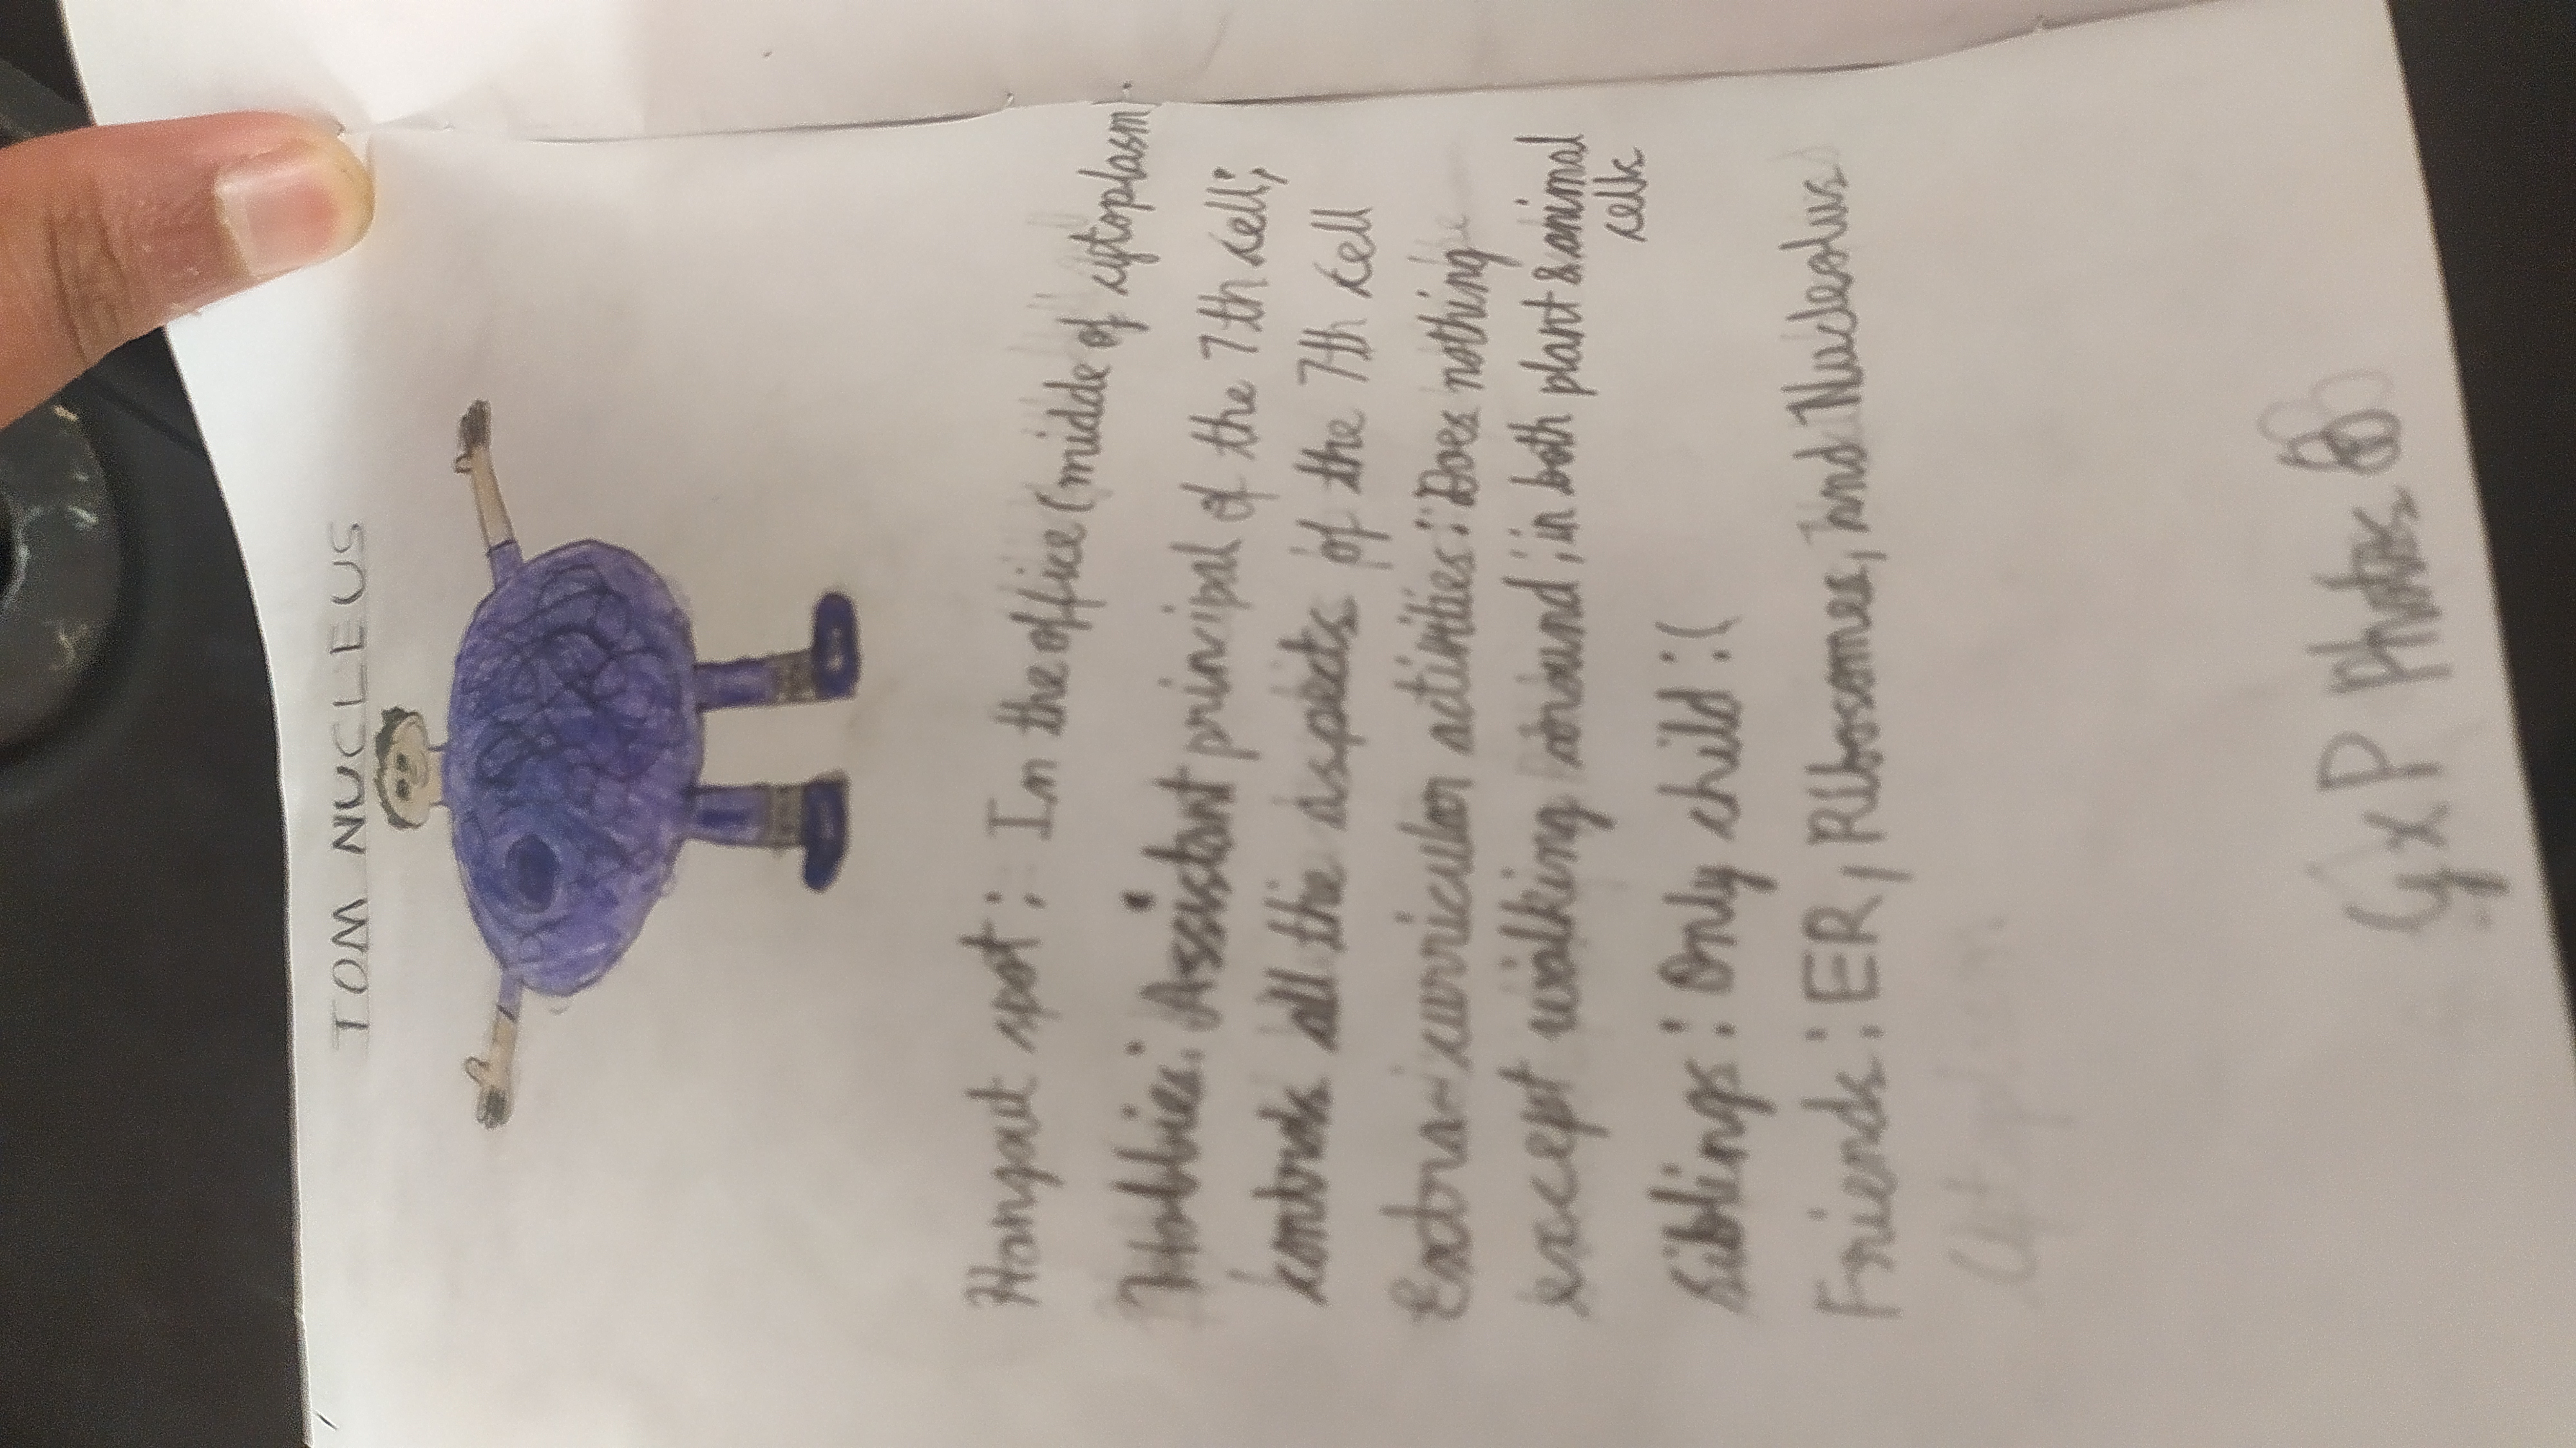 TOM NUCLEUS
Hangout spot: In the office (middle of cytoplasm)
Hobbies: Assistant principal of the 7th cell;
controls all the aspects of the 7th cell
Extra-curricular activities: Does nothing
except walking around, in both plant & animal
cells
Siblings: Only child :(
Friends: ER, Ribosomes, and Nucleolus
GXP Photos